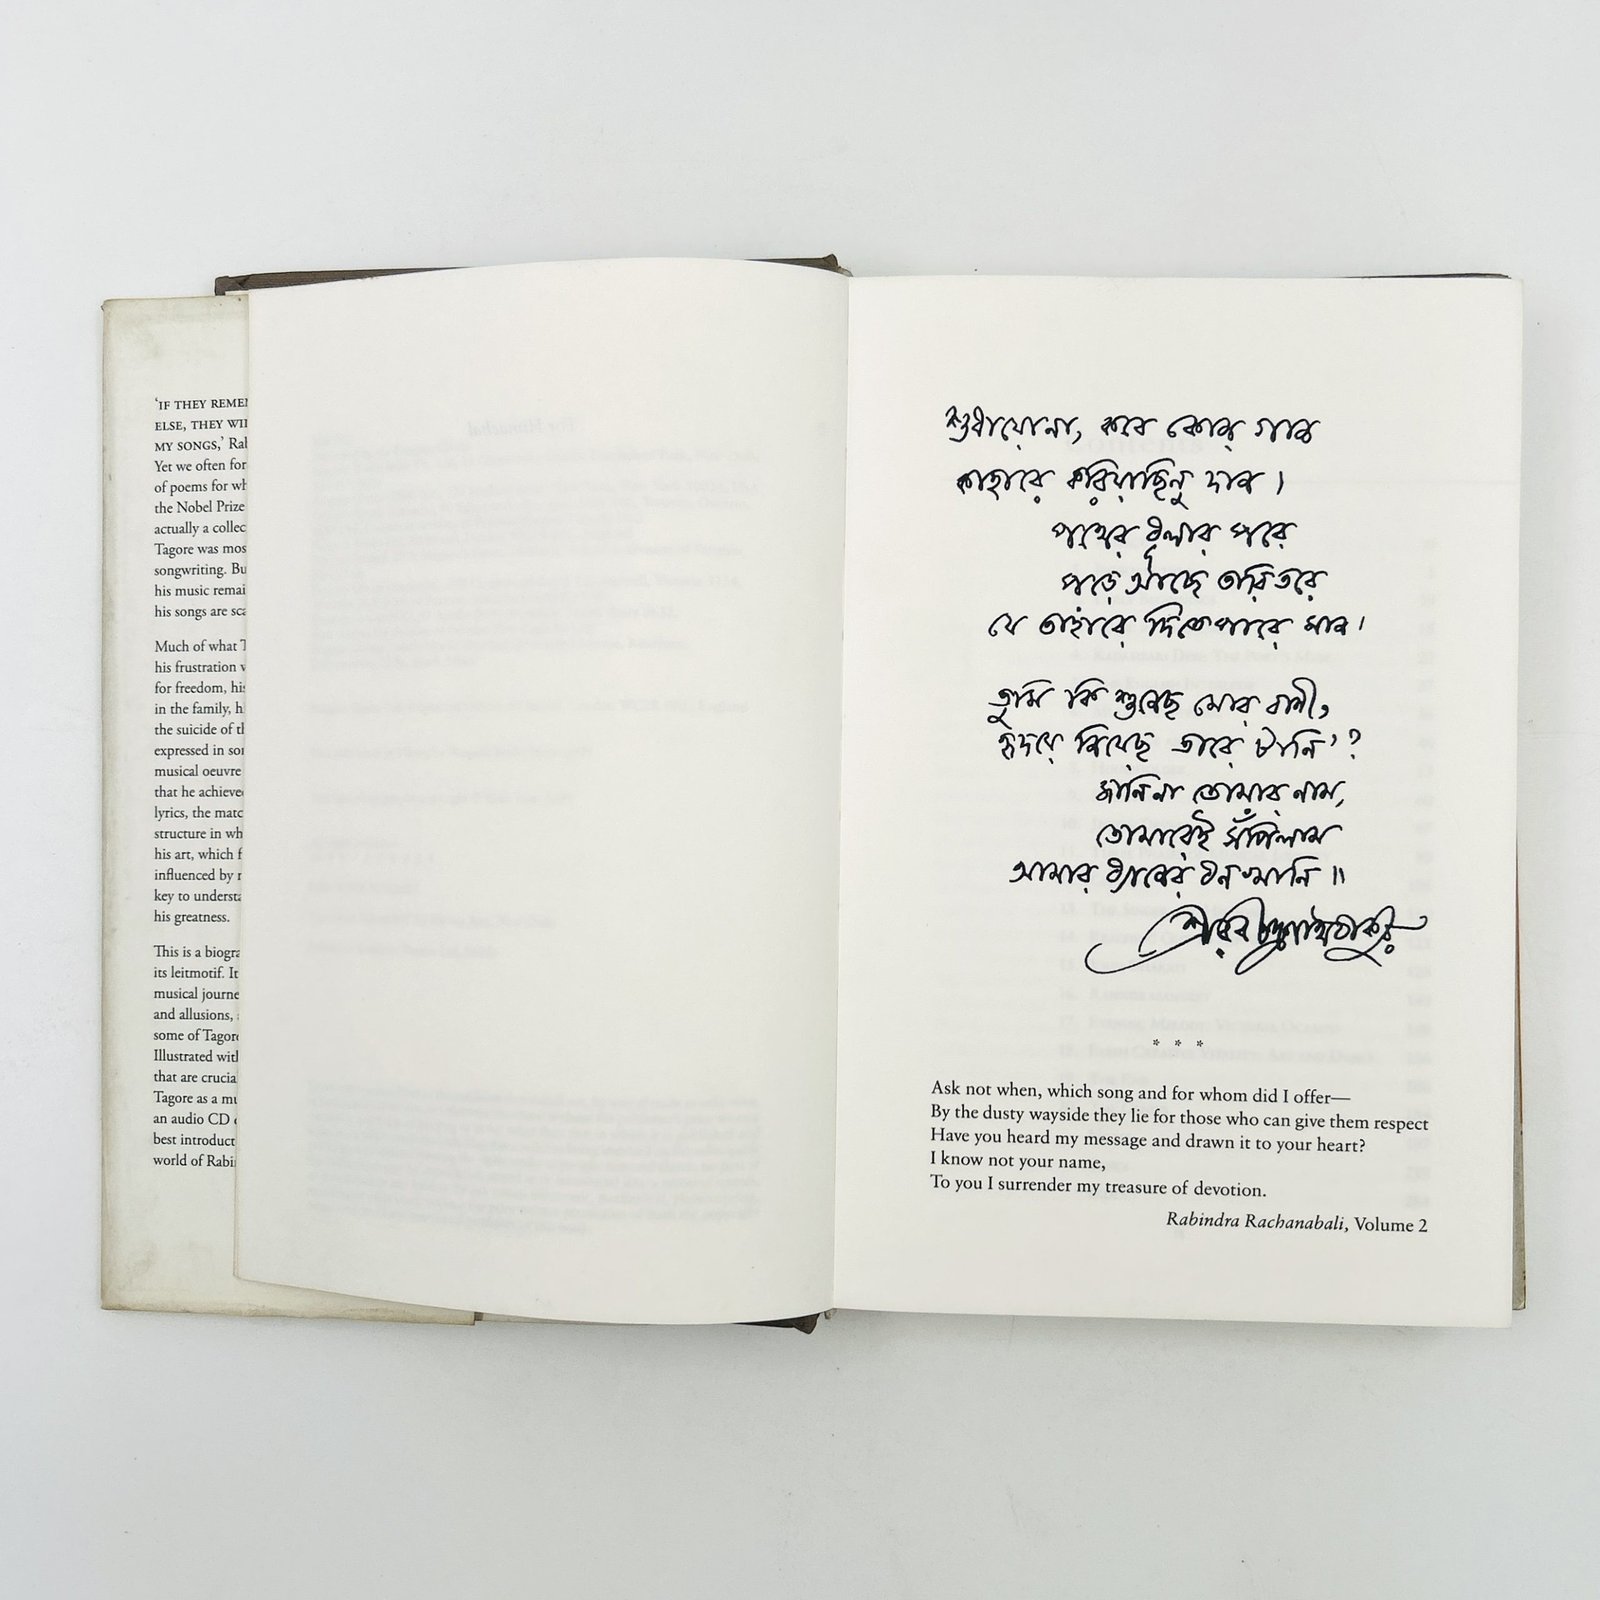 ‘IF THEY REME
ELSE, THEY WI
MY SONGS,’ Ral
Yet we often for
of poems for wh
the Nobel Prize
actually a collec
Tagore was mos
songwriting. Bu
his music remai
his songs are sca
Much of what T
his frustration v
for freedom, his
in the family, h
the suicide of th
expressed in sor
musical oeuvre
that he achieved
lyrics, the matc
structure in wh
his art, which f
influenced by r
key to understa
his greatness.
This is a biogra
its leitmotif. It
musical journe
and allusions,
some of Tagore
Illustrated with
that are crucia
Tagore as a mu
an audio CD
best introduct
world of Rabi
শুধায়োনা, কবে কোন গান
কাহারে করিয়াছিনু দান।
পথের ধূলার পরে
পড়ে আছে তারি তরে
যে তাহারে দিতে পারে মান।
তুমি কি শুনেছ মোর বাণী,
হৃদয়ে নিয়েছ তারে টানি'?
জানিনা তোমার নাম,
তোমারেই সঁপিলাম
আমার ধ্যানের ধনখানি॥
শ্রীরবীন্দ্রনাথ ঠাকুর
* * *
Ask not when, which song and for whom did I offer—
By the dusty wayside they lie for those who can give them respect
Have you heard my message and drawn it to your heart?
I know not your name,
To you I surrender my treasure of devotion.
Rabindra Rachanabali, Volume 2